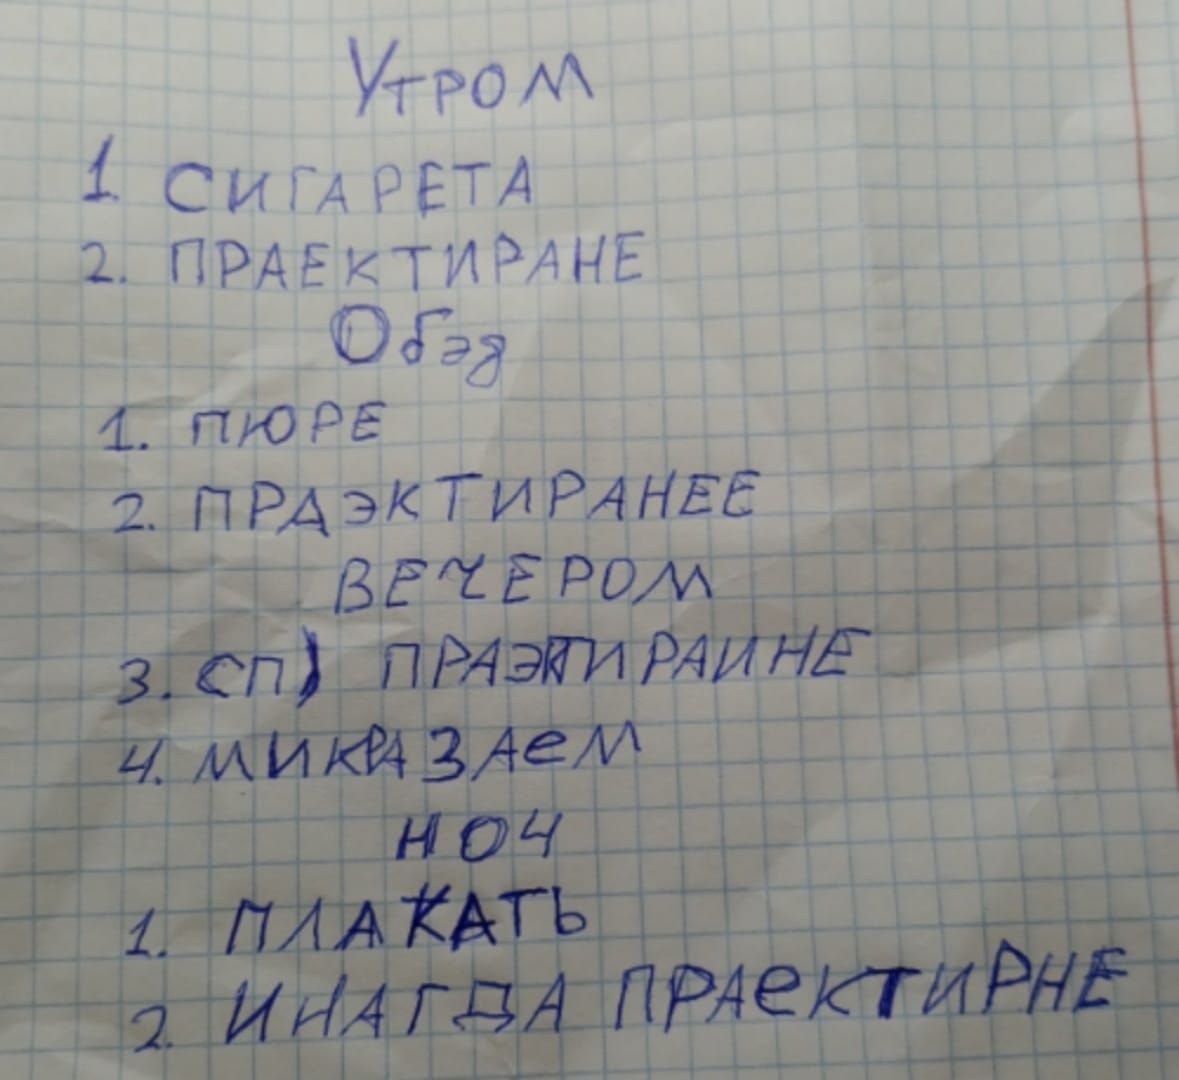 Утром
1. СИГАРЕТА
2. ПРАЕКТИРАНЕ
Обэд
1. ПЮРЕ
2. ПРАЭКТИРАНЕЕ
ВЕЧЕРОМ
3. СП) ПРАЭКТИРАИНЕ
4. МИКРАЗАеМ
НОЧ
1. ПЛАКАТЬ
2. ИНАГДА ПРАеКТИРНЕ